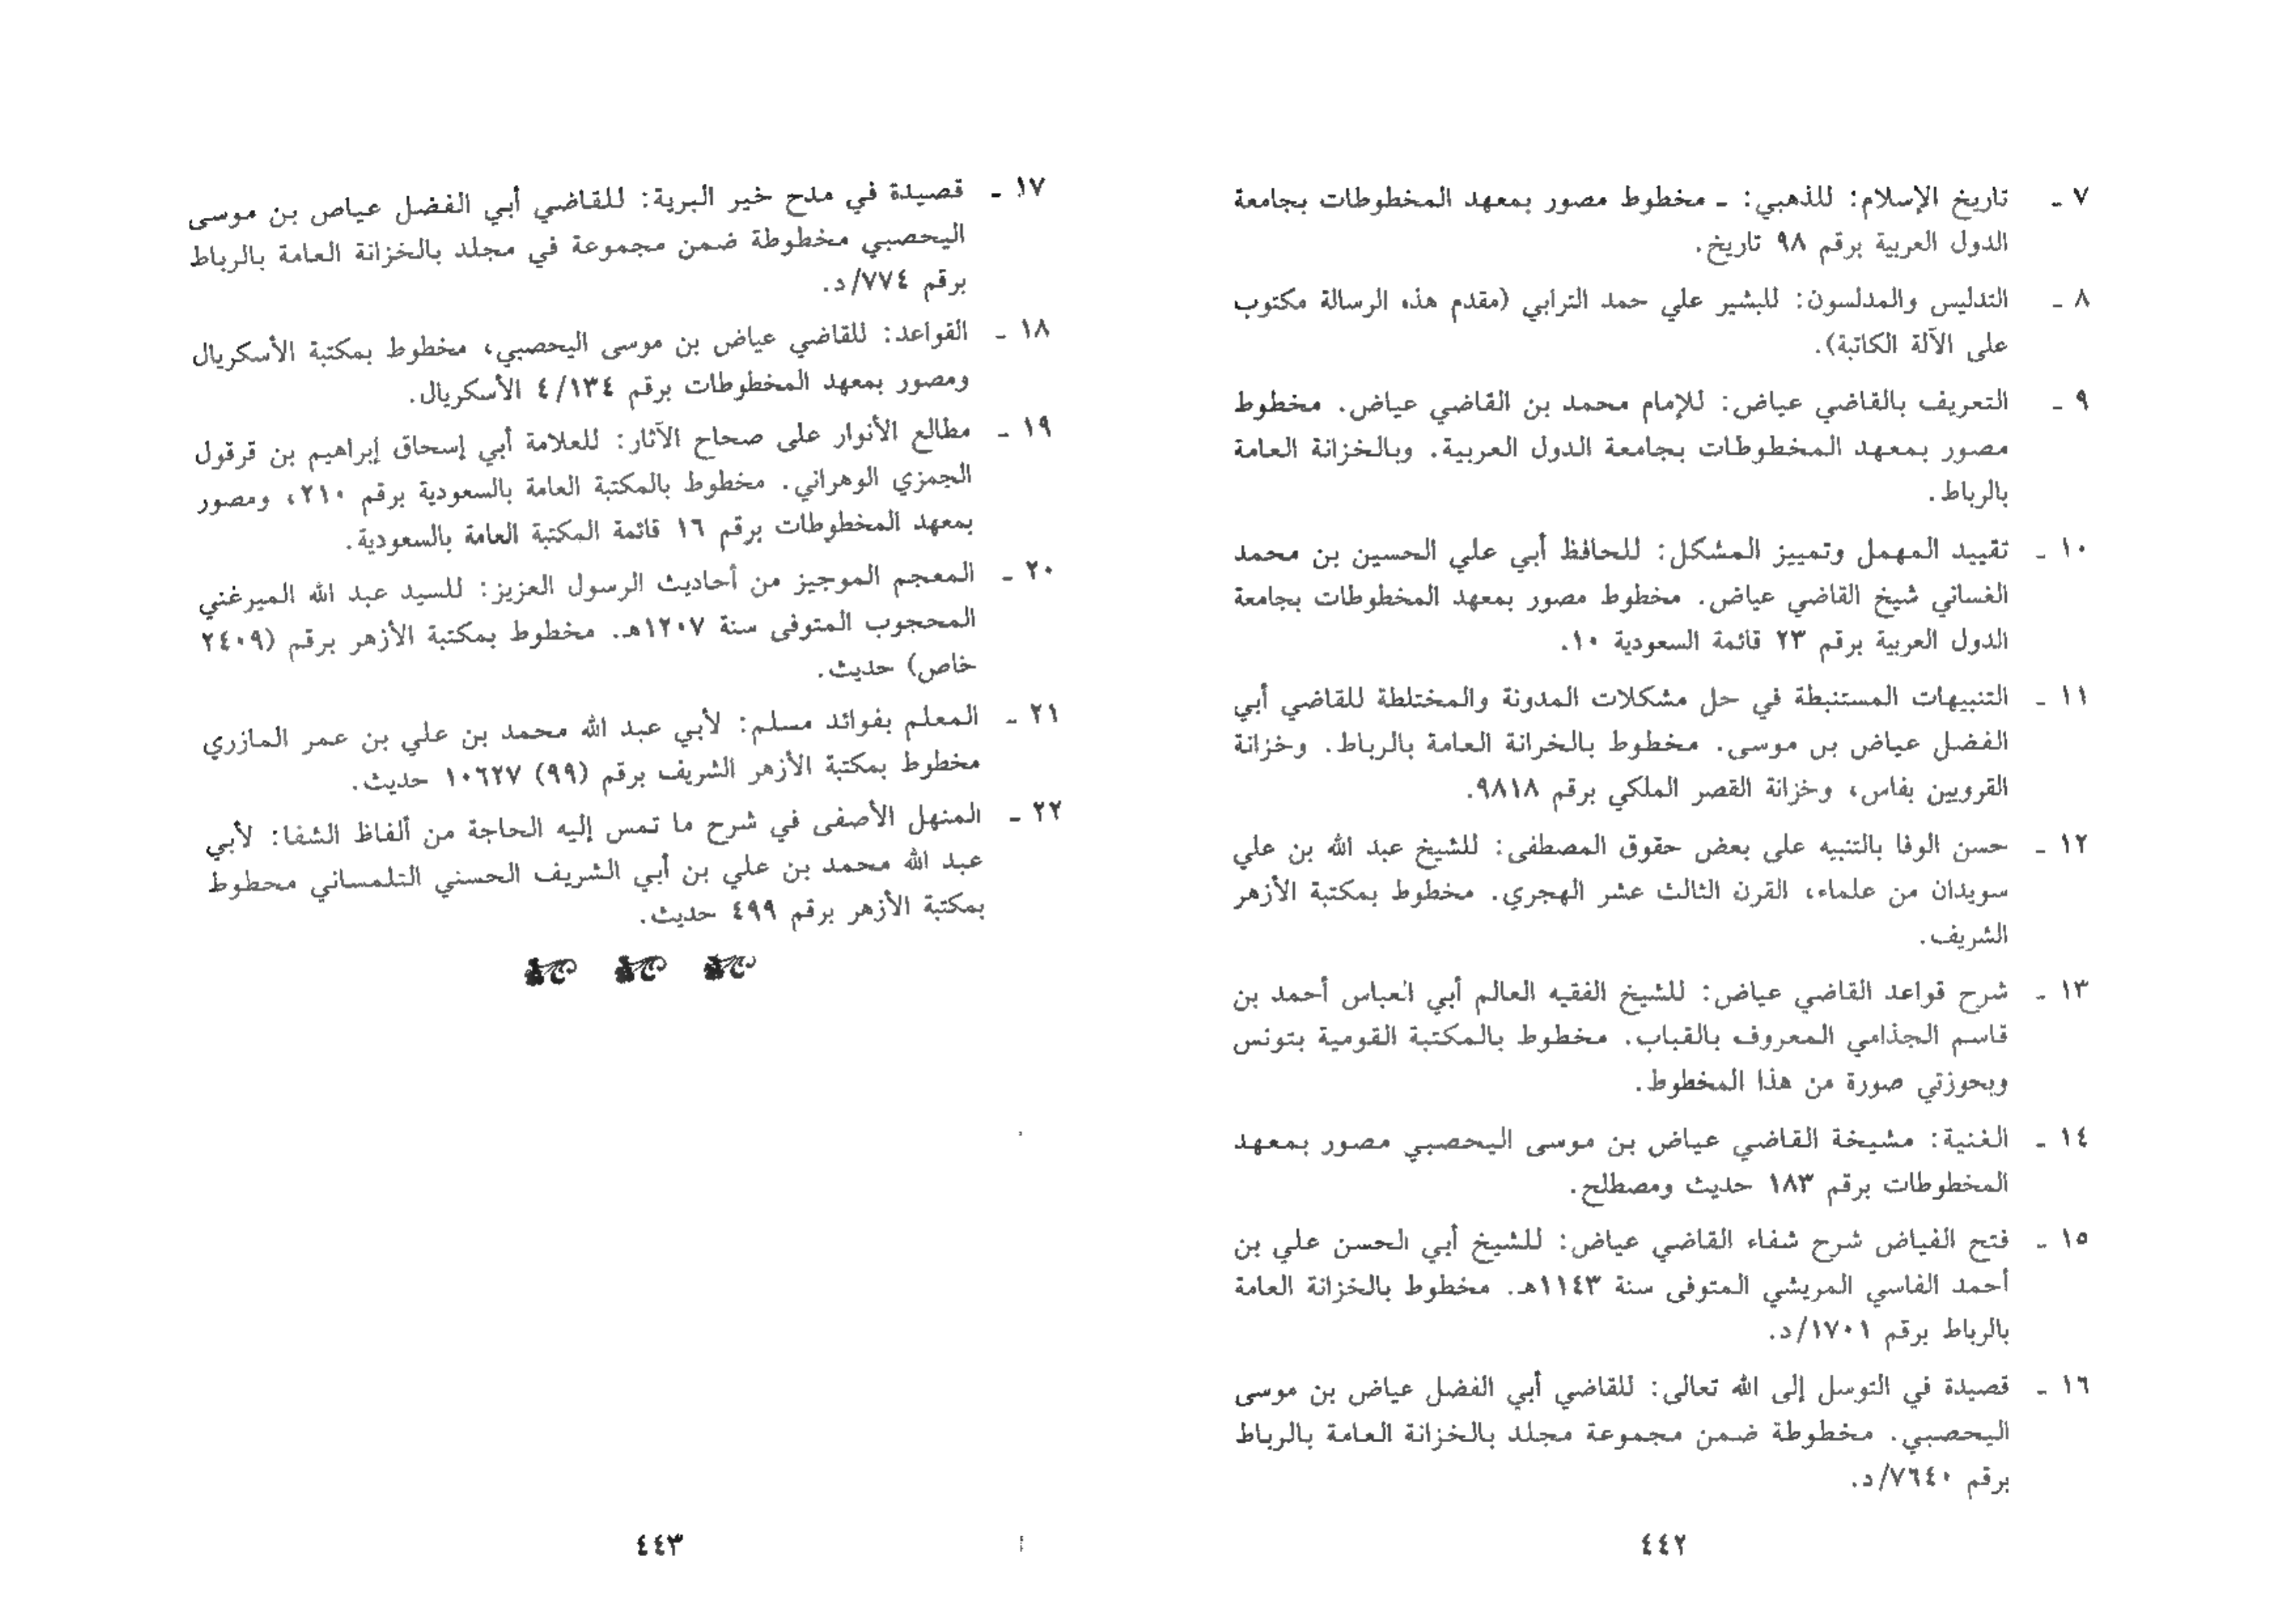 ٧ ـ تاريخ الإسلام: للذهبي: ـ مخطوط مصور بمعهد المخطوطات بجامعة
الدول العربية برقم ٩٨ تاريخ.
٨ ـ التدليس والمدلسون: للبشير علي حمد الترابي (مقدم هذه الرسالة مكتوب
على الآلة الكاتبة).
٩ ـ التعريف بالقاضي عياض: للإمام محمد بن القاضي عياض. مخطوط
مصور بمعهد المخطوطات بجامعة الدول العربية. وبالخزانة العامة
بالرباط.
١٠ ـ تقييد المهمل وتمييز المشكل: للحافظ أبي علي الحسين بن محمد
الغساني شيخ القاضي عياض. مخطوط مصور بمعهد المخطوطات بجامعة
الدول العربية برقم ٢٣ قائمة السعودية ١٠.
١١ ـ التنبيهات المستنبطة في حل مشكلات المدونة والمختلطة للقاضي أبي
الفضل عياض بن موسى. مخطوط بالخزانة العامة بالرباط. وخزانة
القرويين بفاس، وخزانة القصر الملكي برقم ٩٨١٨.
١٢ ـ حسن الوفا بالتنبيه على بعض حقوق المصطفى: للشيخ عبد الله بن علي
سويدان من علماء، القرن الثالث عشر الهجري. مخطوط بمكتبة الأزهر
الشريف.
١٣ ـ شرح قواعد القاضي عياض: للشيخ الفقيه العالم أبي العباس أحمد بن
قاسم الجذامي المعروف بالقباب. مخطوط بالمكتبة القومية بتونس
وبحوزتي صورة من هذا المخطوط.
١٤ ـ الغنية: مشيخة القاضي عياض بن موسى اليحصبي مصور بمعهد
المخطوطات برقم ١٨٣ حديث ومصطلح.
١٥ ـ فتح الفياض شرح شفاء القاضي عياض: للشيخ أبي الحسن علي بن
أحمد الفاسي المريشي المتوفى سنة ١١٤٣هـ. مخطوط بالخزانة العامة
بالرباط برقم ١٧٠١/د.
١٦ ـ قصيدة في التوسل إلى الله تعالى: للقاضي أبي الفضل عياض بن موسى
اليحصبي. مخطوطة ضمن مجموعة مجلد بالخزانة العامة بالرباط
برقم ٧٦٤٠/د.
٤٤٢
١٧ ـ قصيدة في مدح خير البرية: للقاضي أبي الفضل عياض بن موسى
اليحصبي مخطوطة ضمن مجموعة في مجلد بالخزانة العامة بالرباط
برقم ٧٧٤/د.
١٨ ـ القواعد: للقاضي عياض بن موسى اليحصبي، مخطوط بمكتبة الأسكريال
ومصور بمعهد المخطوطات برقم ٤/١٣٤ الأسكريال.
١٩ ـ مطالع الأنوار على صحاح الآثار: للعلامة أبي إسحاق إبراهيم بن قرقول
الجمزي الوهراني. مخطوط بالمكتبة العامة بالسعودية برقم ٢١٠، ومصور
بمعهد المخطوطات برقم ١٦ قائمة المكتبة العامة بالسعودية.
٢٠ ـ المعجم الموجيز من أحاديث الرسول العزيز: للسيد عبد الله الميرغني
المحجوب المتوفى سنة ١٢٠٧هـ. مخطوط بمكتبة الأزهر برقم (٢٤٠٩
خاص) حديث.
٢١ ـ المعلم بفوائد مسلم: لأبي عبد الله محمد بن علي بن عمر المازري
مخطوط بمكتبة الأزهر الشريف برقم (٩٩) ١٠٦٢٧ حديث.
٢٢ ـ المنهل الأصفى في شرح ما تمس إليه الحاجة من ألفاظ الشفا: لأبي
عبد الله محمد بن علي بن أبي الشريف الحسني التلمساني مخطوط
بمكتبة الأزهر برقم ٤٩٩ حديث.
٤٤٣